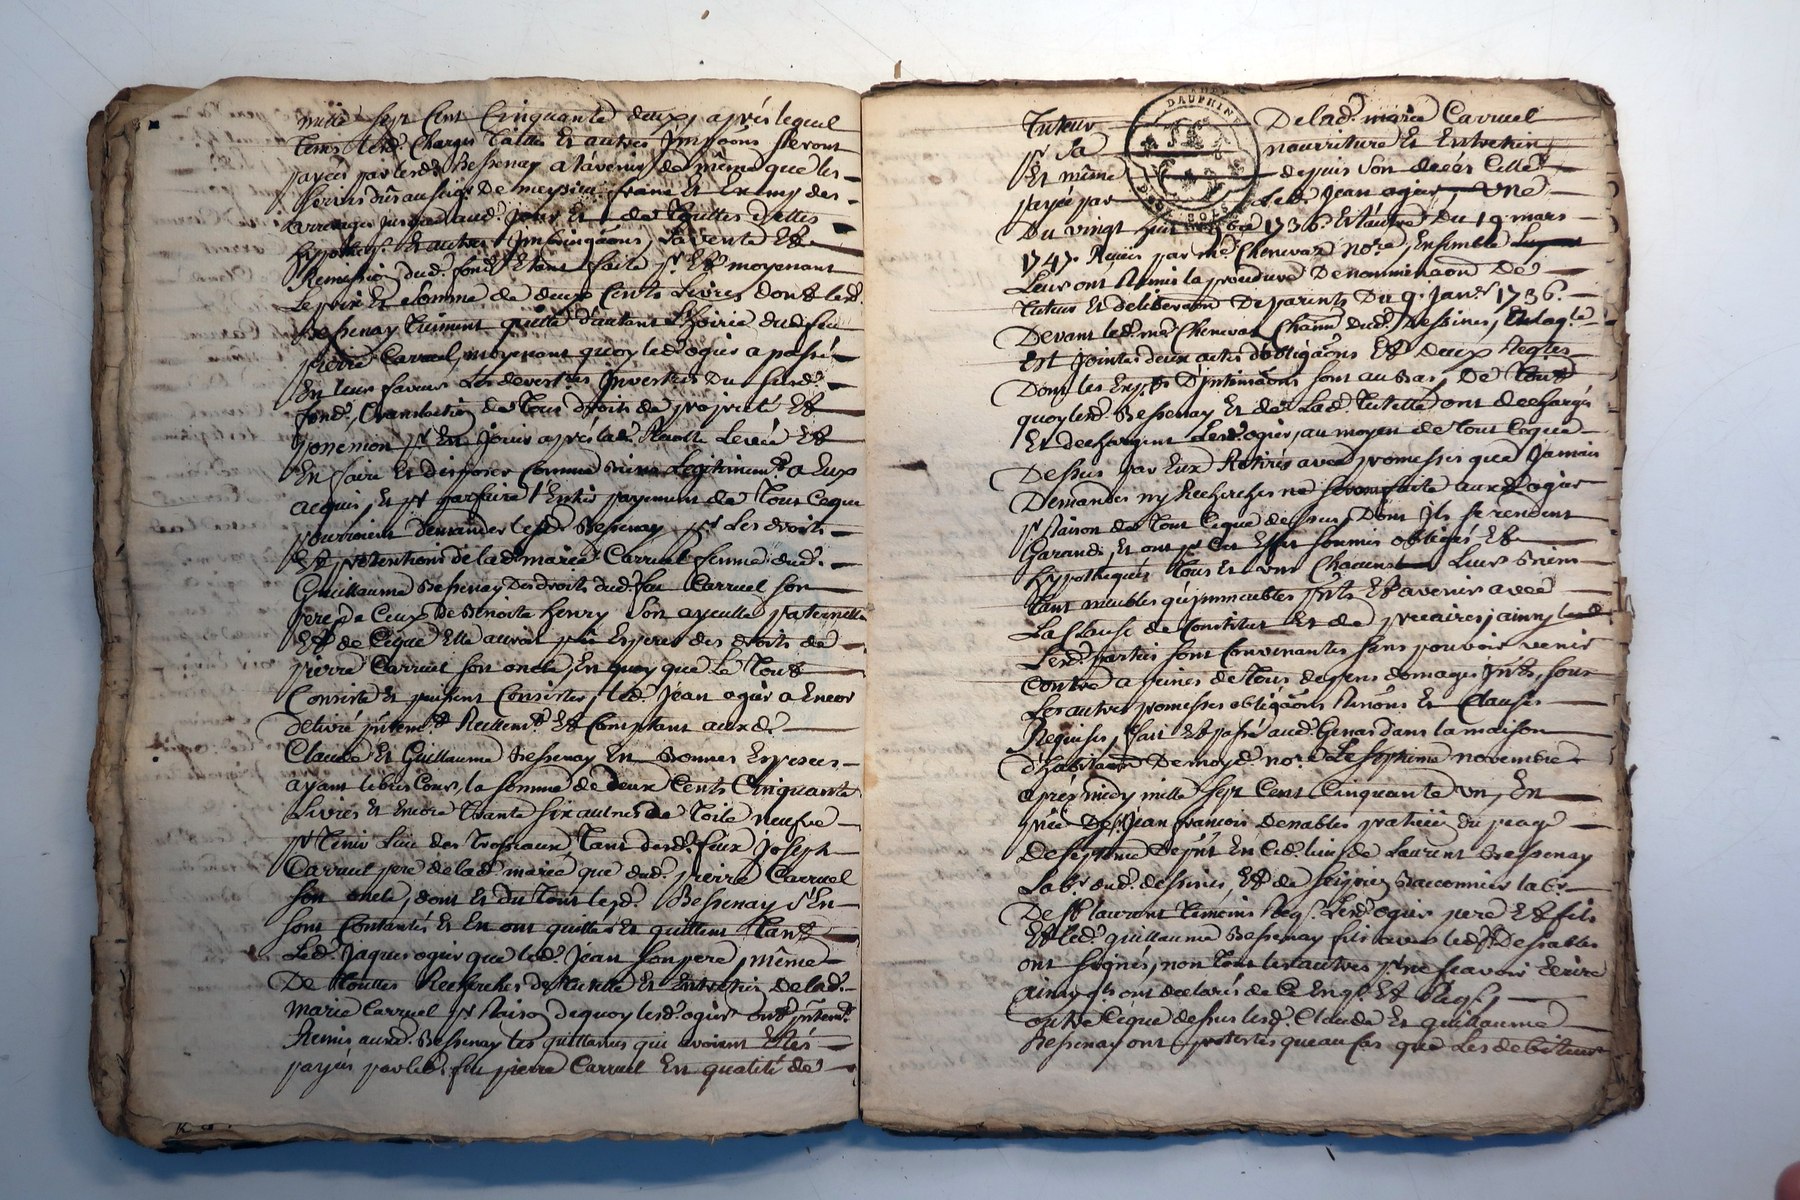 mille sept Cent Cinquante deux, après lequel
tems led. Charges tailles Et autres Impôons seront
payés par lesd. Bessenay a l'avenir de même que les
servis dûs au sigr De meyzieu franc Et Exemp des
arrerages jusques aud. jour Et de touttes dettes
hypoteqs. Et autres Impôons, la vente Et
Remission dud. fond Etant faite pr. Et moyenant
Le prix Et somme de deux Cents Livres dont lesd.
Bessenay tiennent quitte d'autant l'hoirie dud feu
pierre Carruel, moyenant quoy led. ogier a passé
En leur faveur Les devestirs Investirs Du susd.
fond, translation de tous droits de proprieté Et
possession pr. En jouir après lad. Recolte Levée Et
En faire Et disposer Comme biens Legitimemt. a Eux
acquis, Et pr parfaire l'Entier payement de tout Ceque
pourroient demander lesd. Bessenay pr. Les droits
Et pretentions de lad. marie Carruel femme dud.
Guillaume Bessenay Des droits dud. feu Carruel son
pere, De Ceux De Benoite henry Son ayeulle paternelle
Et de Ceque Elle auroit peu Esperer des droits de
pierre Carruel son oncle, En quoy que Le tout
Consiste Et puissent Consister, led. jean ogier a Encor
delivré présentemt. Réellemt. Et Comptant auxd.
Claude Et Guillaume Bessenay En bonnes Especes
ayant libres Cours, la somme de deux Cents Cinquante
Livres Et Encore trante six aulnes De toile neufve
pr tenir Lieu des trosseaux, tant desd. feux joseph
Carruel pere de lad. marie que dud. pierre Carruel
son oncle, dont Et du tout lesd. Bessenay s'En
sont Contantés Et En ont quitté Et quittent tant
Led. Jaques ogier que led. Jean son pere, même
De touttes Recherches de tutelle Et Entretien de lad.
Marie Carruel pr Raison dequoy lesd. ogier ont présentemt.
Remis auxd. Bessenay les quittances qui avoient Estés
payés par led. feu pierre Carruel En qualité de
Tuteur De lad. marie Carruel
pr Sa nourriture Et Entretien
Et même depuis Son decés Celle
payée par Led. Jean ogier une
Du vingt 1736. Et l'autre Du 19 mars
1747. Reçues par me. Chenevaz nore, Ensemble
Leur ont Remis la procedure De nomminaon De
tuteur Et deliberaon De parents Du 9. Janer. 1736.
Devant led. me Chenevaz Chatn Dud. Dessines, Et laqle.
Est jointes deux actes d'obligaons Et deux Reqtes
Dont les Enpts D'intimaons sont au bas, De tout
quoy lesd. Bessenay Et de Lad. tutelle ont dechargé
Et dechargent Lesd. ogier, au moyen de tout Ceque
Dessus par Eux Retirés avec promesses que Jamais
Demandes ny Recherches ne seront faite auxd. ogier
pr. Raison de tout Ceque dessus, Dont Ils se rendent
Garands Et ont pr Cet Effet soumis obligés Et
hypothequés tous Et uns Chacuns Leurs biens
tant meubles qu'immeubles prts. Et avenir avec
La Clause de Constitut Et de precaires, ainsy
Lesd. parties sont Convenantes sans pouvoir venir
Contre a peines de tous depens domages Intts, sous
Les autres promesses obligaons Renons. Et Clauses
Requises, fait Et passé aud. Genas dans la maison
d'habitaon De moyd. nore. Le septieme novembre
après midy mille sept Cent Cinquante un, En
pnce De Sr. Jean francois Denables praticien du peage
De septeme Depnt En Ced. lieu, de Laurent Bessenay
Labr. dud. dessines, Et de seigne Baconnier labr.
De St laurent temoins Reqs. Lesd. ogier pere Et fils
Et led. guillaume Bessenay fils avec led. Sr Desnables
ont signés, non tous les autres pr. ne sçavoir Ecrire
ainsy qls ont declarés de Ce Enqs. Et Reqs.,
outre Ceque dessus lesd. Claude Et guillaume
Bessenay ont protestés que au Cas que Les debiteurs